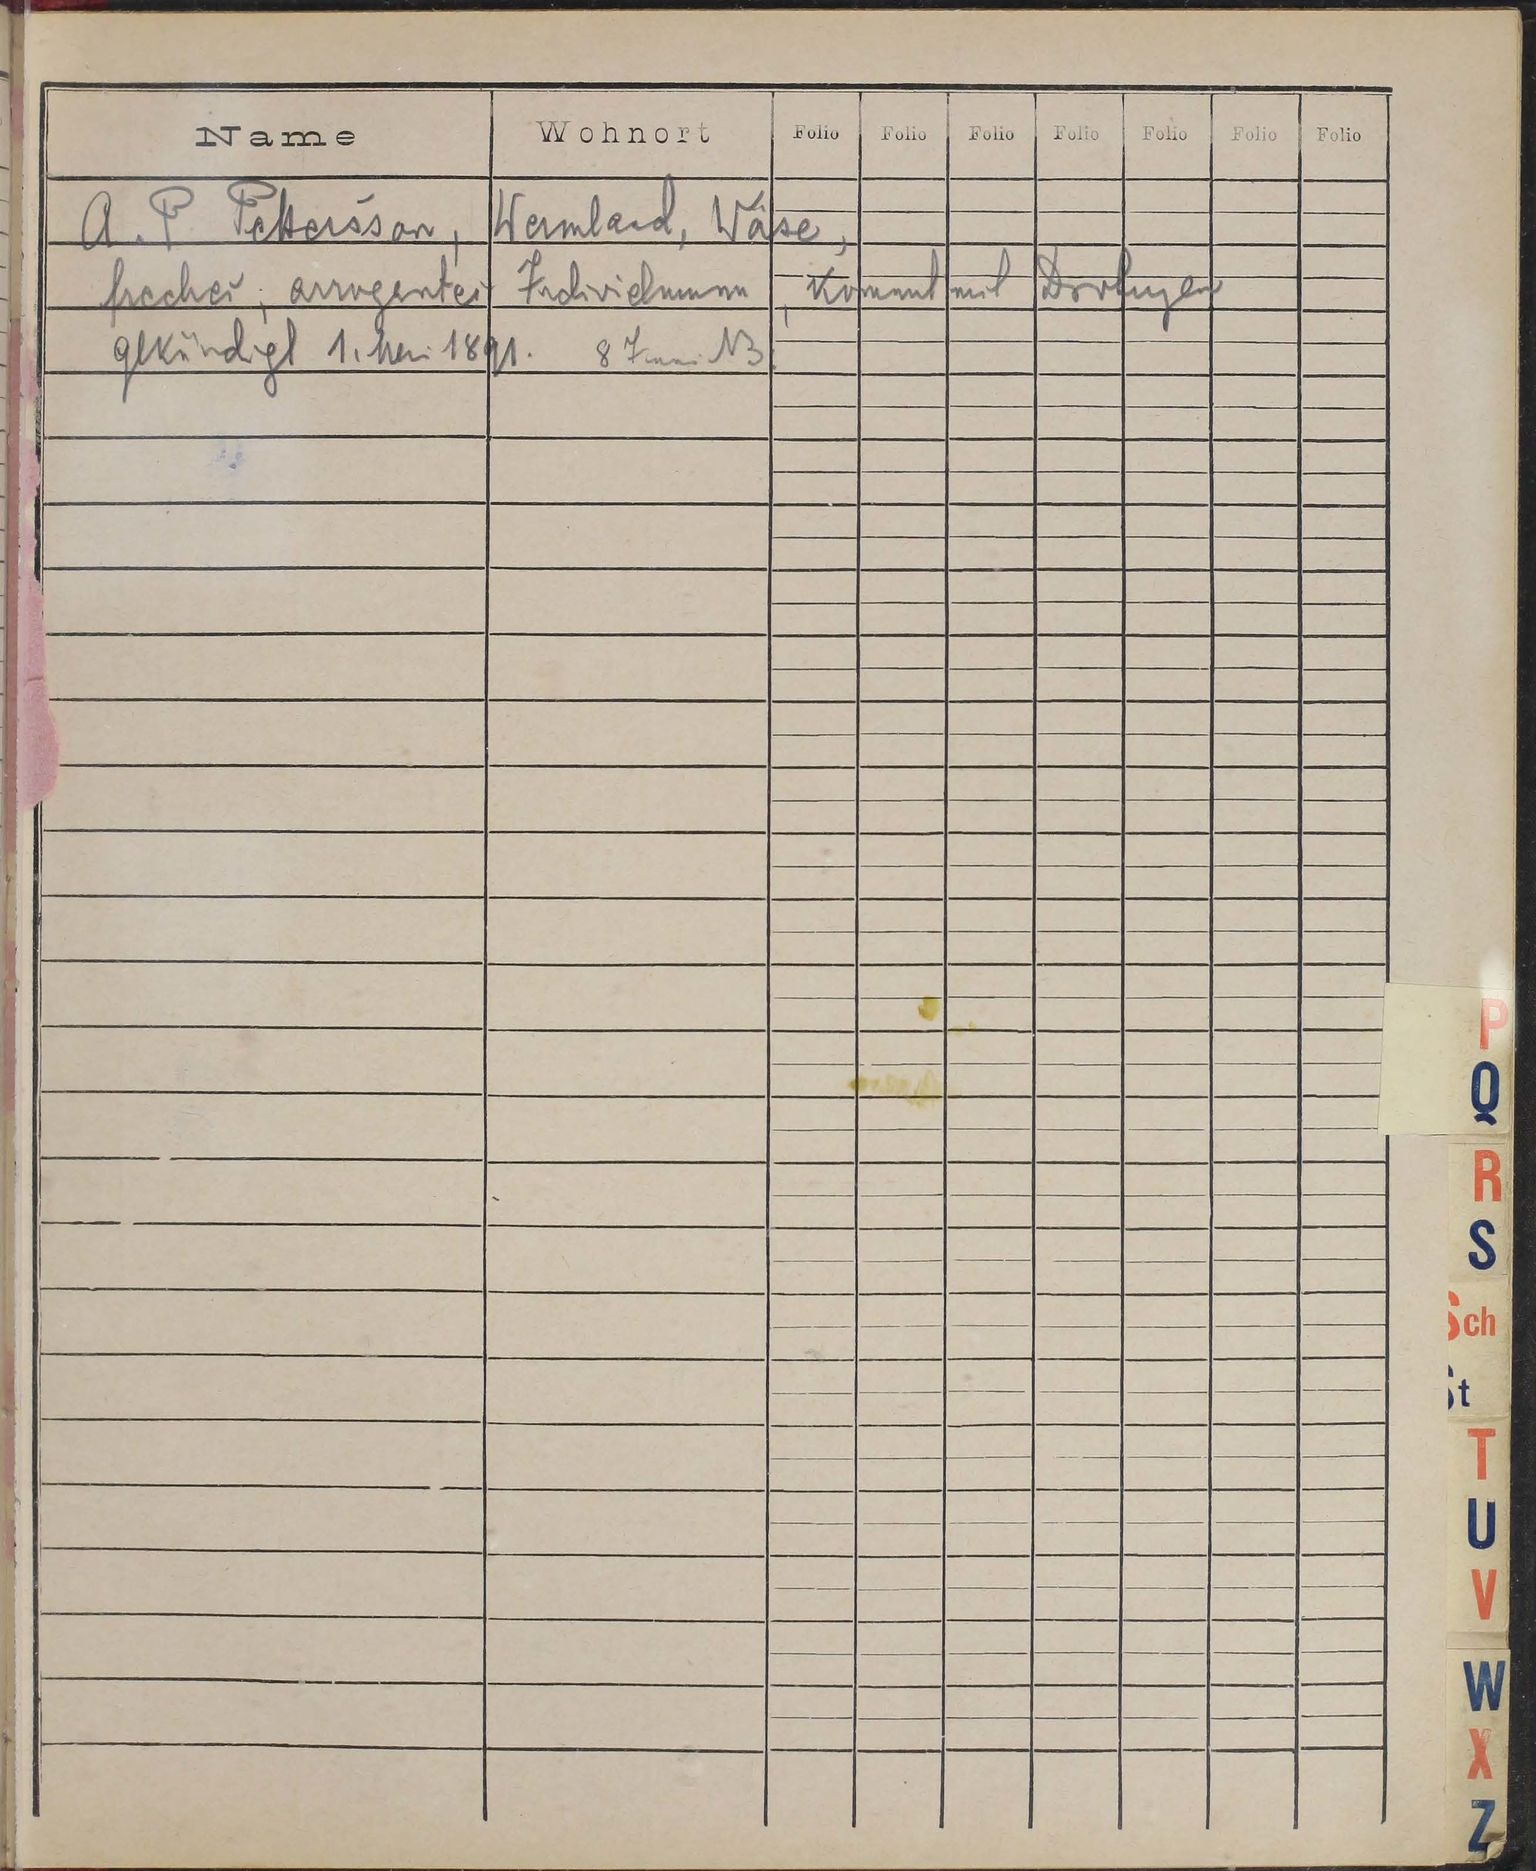 Name Wohnort Folio Folio Folio Folio Folio Folio Folio
A. P Pettersson, Wermland, Wäse,
freches, arrogantes Individuum, kommt mit
gekündigt 1. Mai 1891. 8 Juni NB.
P
Q
R
S
Sch
St
T
U
V
W
X
Z